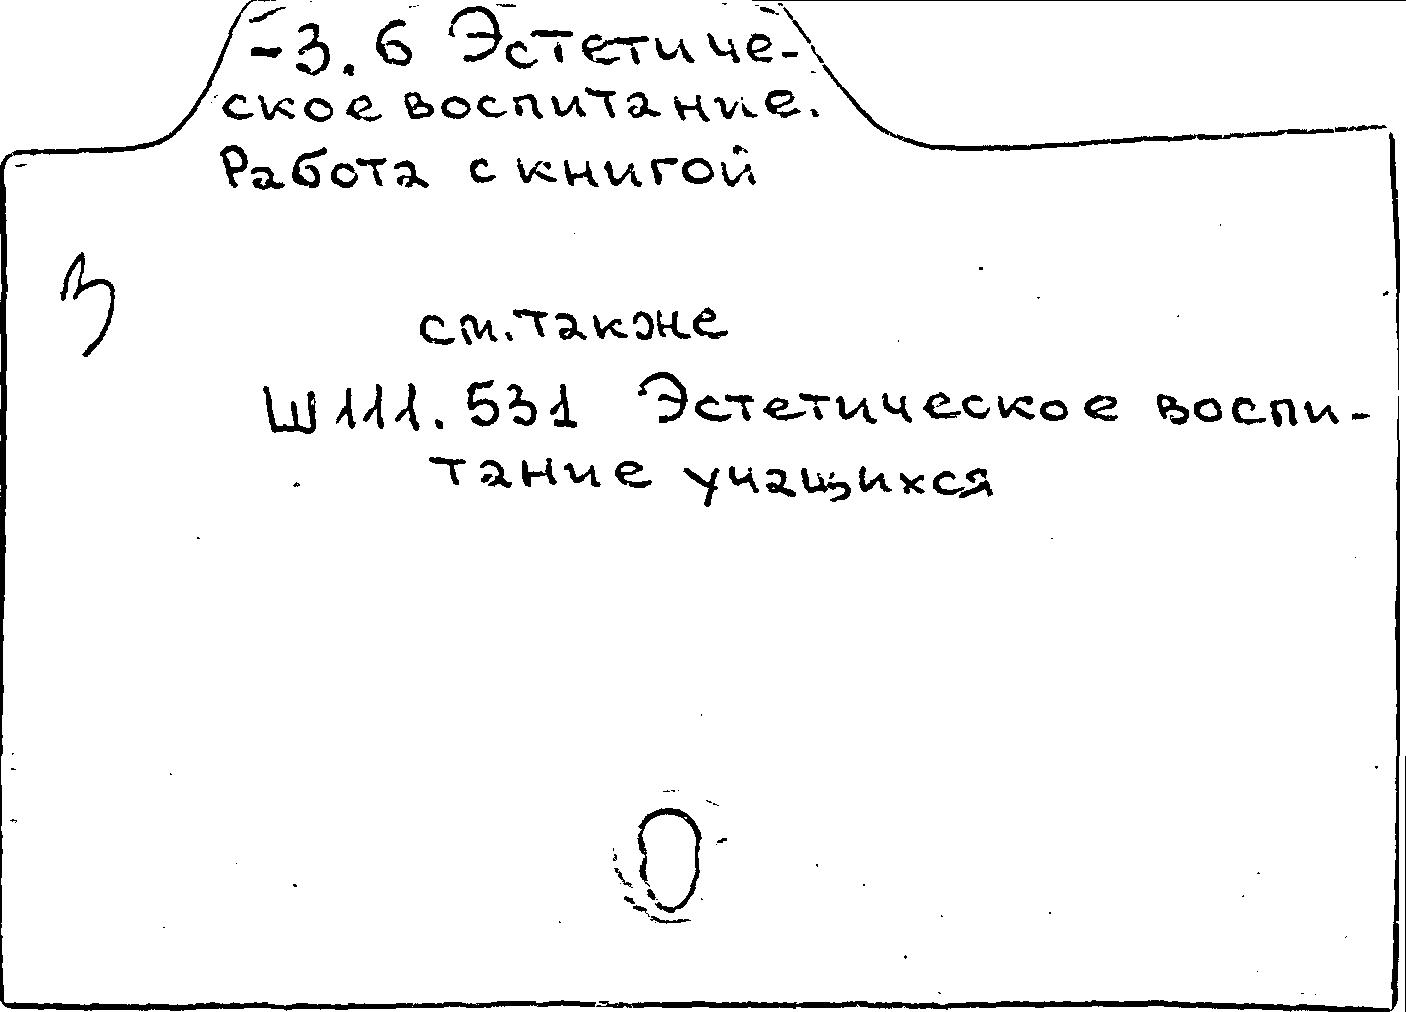 -3.6 Эстетиче-
ское воспитание.
Работа с книгой
см. также
Ш111.531 Эстетическое воспи-
тание учащихся